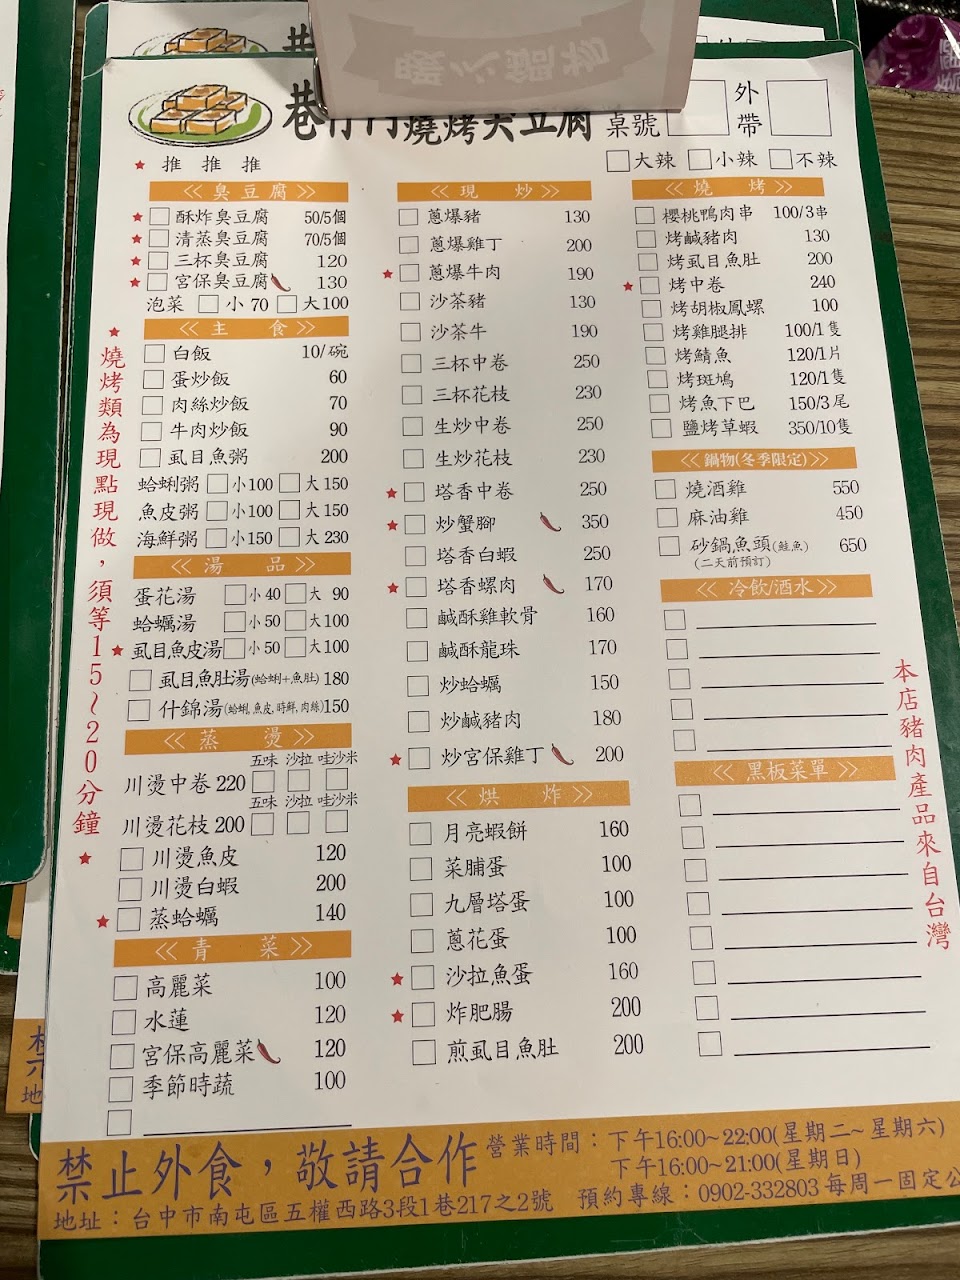 燒烤臭豆腐
桌號
外帶
推 推 推
大辣 小辣 不辣
<<臭豆腐>>
酥炸臭豆腐 50/5個
清蒸臭豆腐 70/5個
三杯臭豆腐 120
宮保臭豆腐 130
泡菜 小 70 大100
<<主 食>>
白飯 10/碗
蛋炒飯 60
肉絲炒飯 70
牛肉炒飯 90
虱目魚粥 200
蛤蜊粥 小100 大150
魚皮粥 小100 大150
海鮮粥 小150 大230
<<湯 品>>
蛋花湯 小40 大 90
蛤蠣湯 小50 大100
虱目魚皮湯 小50 大100
虱目魚肚湯(蛤蜊+魚肚)180
什錦湯(蛤蜊,魚皮,時鮮,肉絲)150
<<蒸 燙>>
五味 沙拉 哇沙米
川燙中卷 220
五味 沙拉 哇沙米
川燙花枝 200
川燙魚皮 120
川燙白蝦 200
蒸蛤蠣 140
<<青 菜>>
高麗菜 100
水蓮 120
宮保高麗菜 120
季節時蔬 100
<<現 炒>>
蔥爆豬 130
蔥爆雞丁 200
蔥爆牛肉 190
沙茶豬 130
沙茶牛 190
三杯中卷 250
三杯花枝 230
生炒中卷 250
生炒花枝 230
塔香中卷 250
炒蟹腳 350
塔香白蝦 250
塔香螺肉 170
鹹酥雞軟骨 160
鹹酥龍珠 170
炒蛤蠣 150
炒鹹豬肉 180
炒宮保雞丁 200
<<烘 炸>>
月亮蝦餅 160
菜脯蛋 100
九層塔蛋 100
蔥花蛋 100
沙拉魚蛋 160
炸肥腸 200
煎虱目魚肚 200
<<燒 烤>>
櫻桃鴨肉串 100/3串
烤鹹豬肉 130
烤虱目魚肚 200
烤中卷 240
烤胡椒鳳螺 100
烤雞腿排 100/1隻
烤鯖魚 120/1片
烤斑鳩 120/1隻
烤魚下巴 150/3尾
鹽烤草蝦 350/10隻
<<鍋物(冬季限定)>>
燒酒雞 550
麻油雞 450
砂鍋魚頭(鮭魚) 650
(二天前預訂)
<<冷飲/酒水>>
<<黑板菜單>>
燒烤類為現點現做，須等15~20分鐘
本店豬肉產品來自台灣
禁止外食，敬請合作
營業時間：下午16:00~22:00(星期二~星期六)
下午16:00~21:00(星期日)
地址：台中市南屯區五權西路3段1巷217之2號 預約專線：0902-332803 每周一固定公